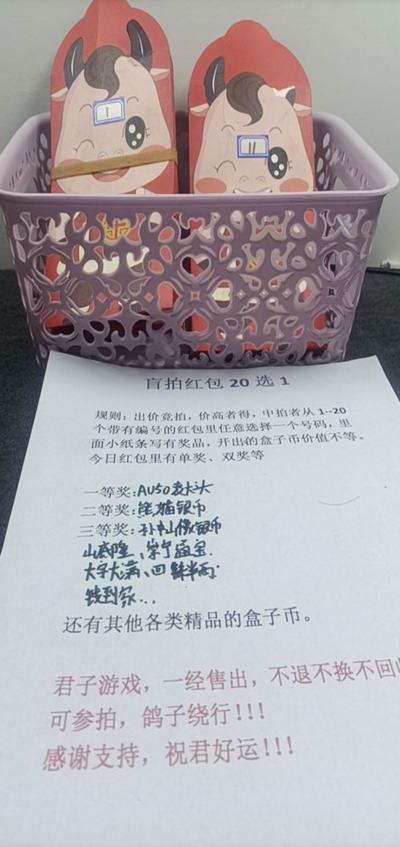 1
11
盲拍红包 20 选 1
规则：出价竞拍，价高者得，中拍者从 1--20
个带有编号的红包里任意选择一个号码，里
面小纸条写有奖品，开出的盒子币价值不等。
今日红包里有单奖、双奖等
一等奖：AU50袁大头
二等奖：熊猫银币
三等奖：孙小像银币
山底隆、崇宁通宝
大字大满、四川
钱到家...
还有其他各类精品的盒子币。
君子游戏，一经售出，不退不换不回
可参拍，鸽子绕行!!!
感谢支持，祝君好运!!!